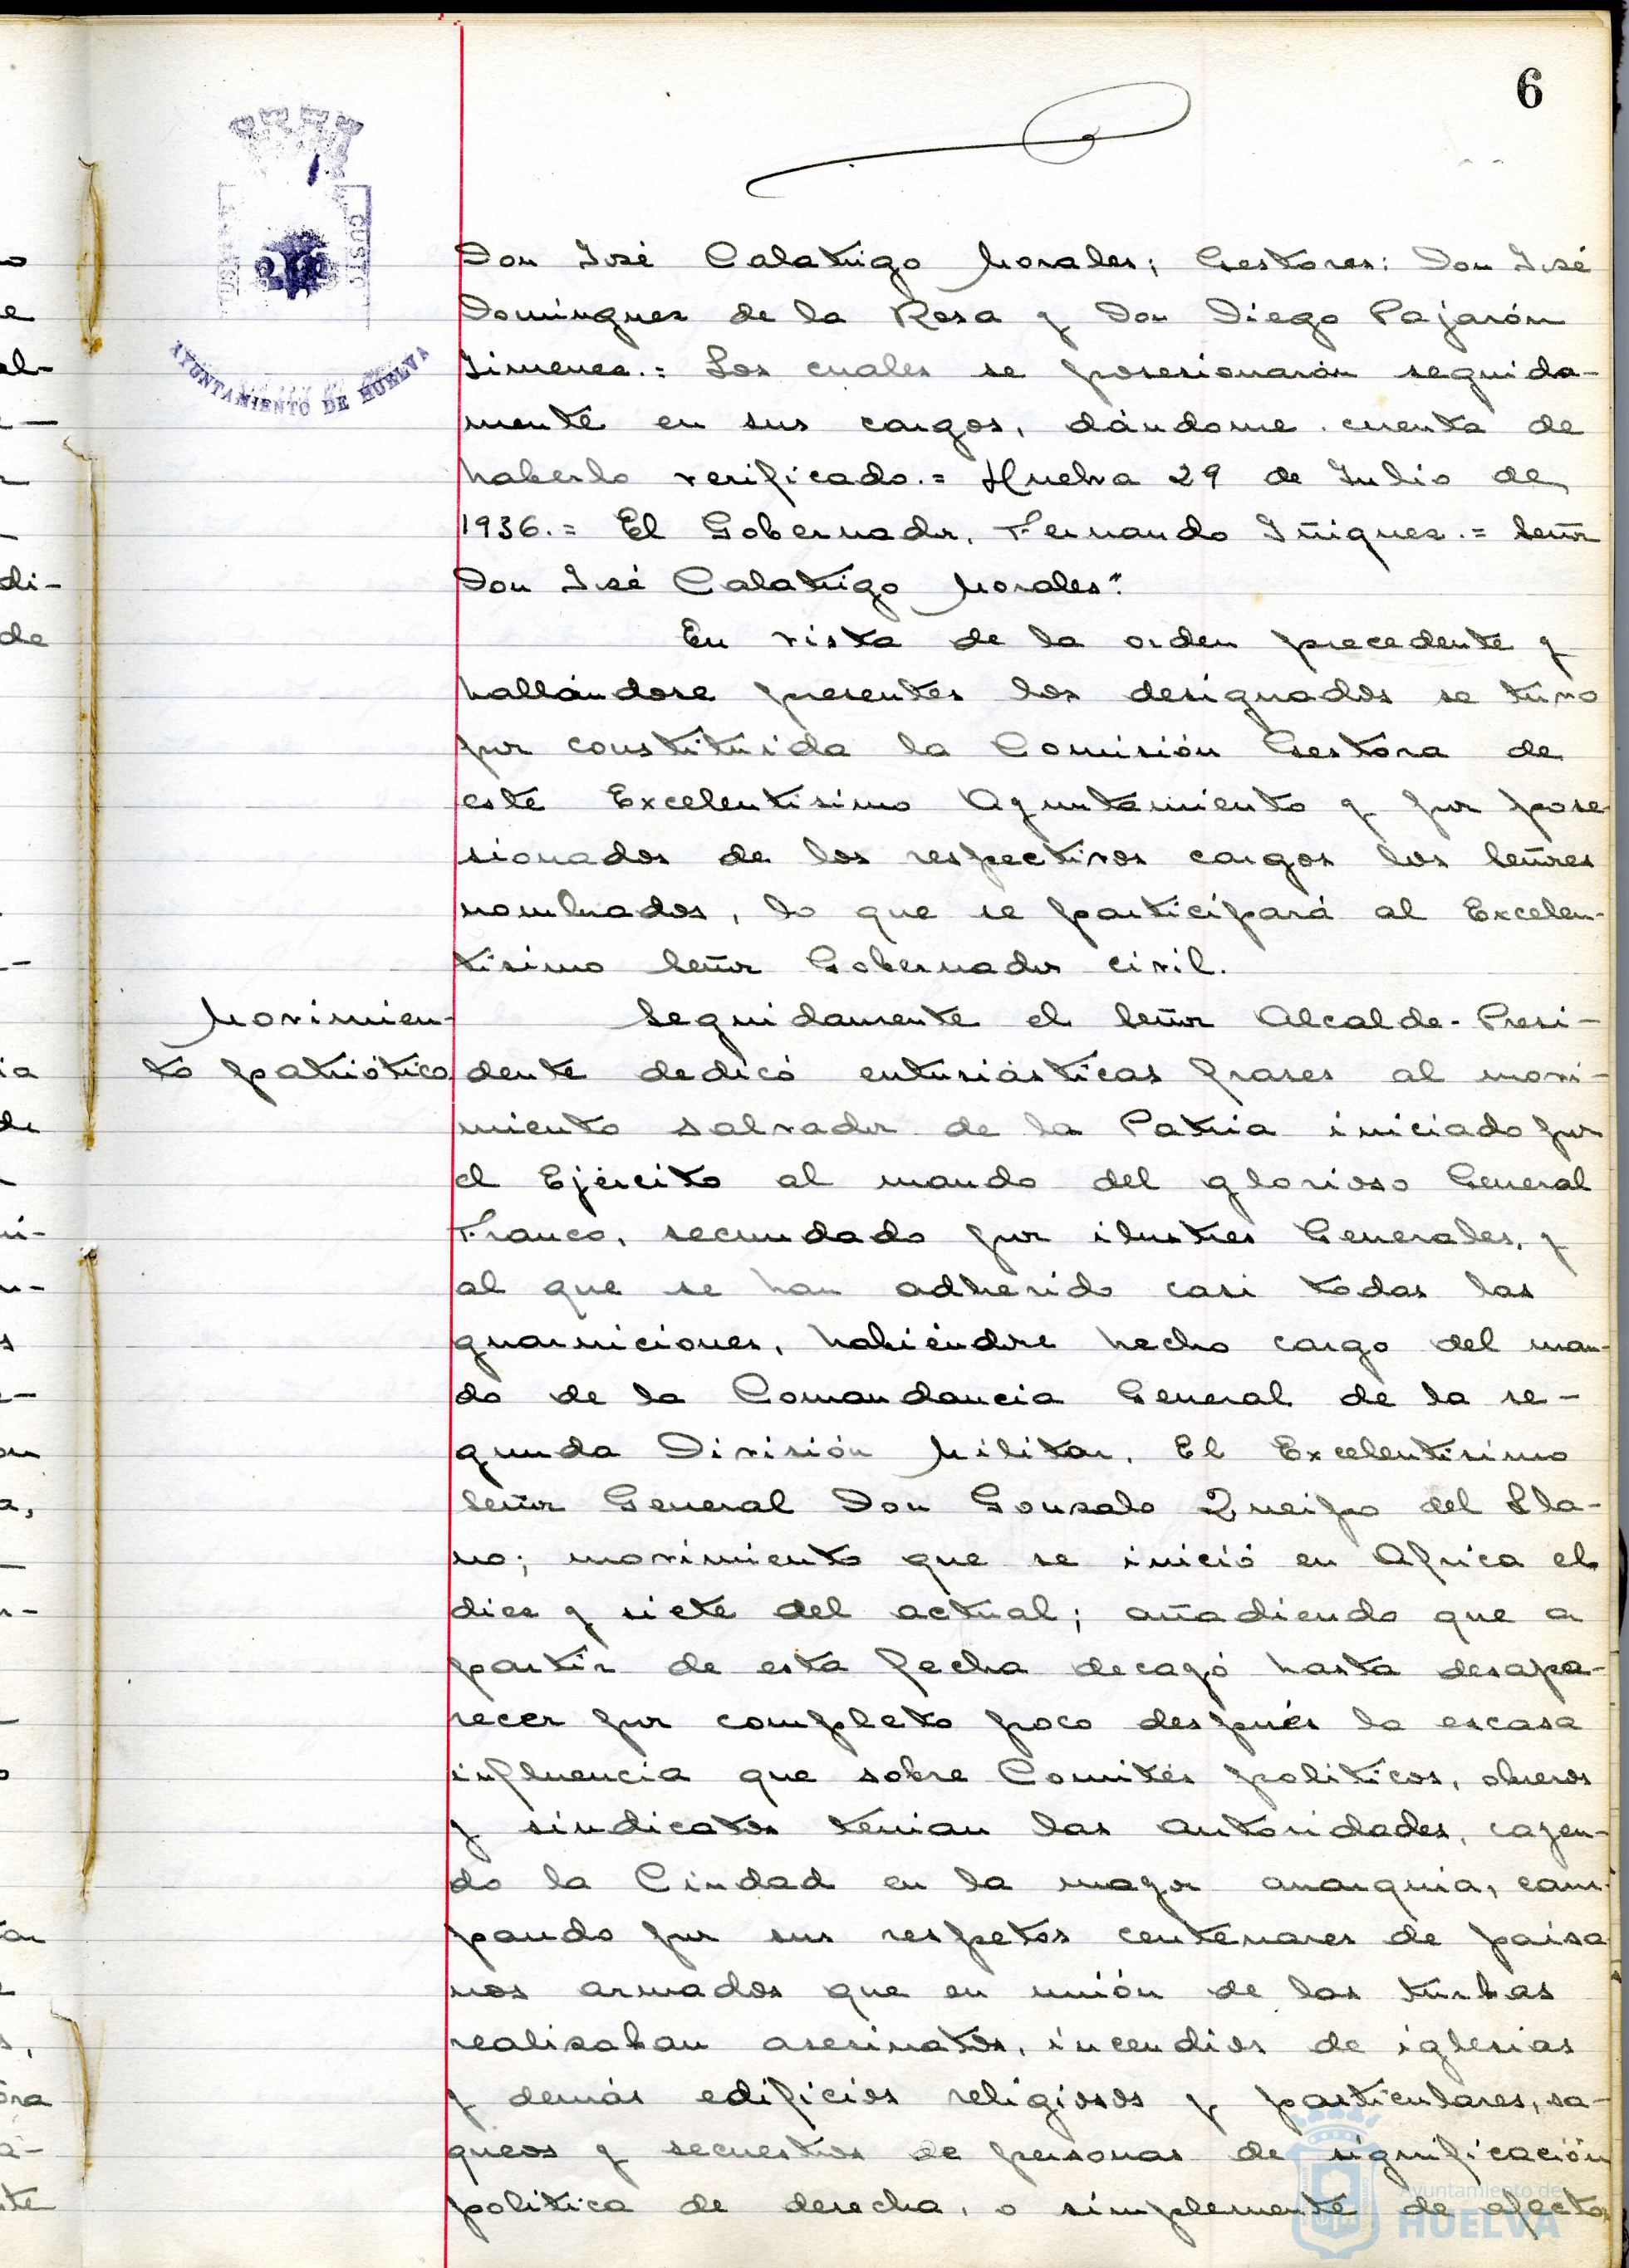 6
AYUNTAMIENTO DE HUELVA
Don José Calatrigo Morales; Gestores: Don José
Dominguez de la Rosa y Don Diego Pajarón
Jimenez.= Los cuales se posesionarán seguida-
mente en sus cargos, dándome cuenta de
haberlo verificado.= Huelva 29 de Julio de
1936.= El Gobernador, Fernando Iñiguez.= Señor
Don José Calatrigo Morales".
En vista de la orden precedente y
hallándose presentes los designados se tuvo
por constituida la Comisión Gestora de
este Excelentisimo Ayuntamiento y por pose-
sionados de los respectivos cargos los Señores
nombrados, lo que se participará al Excelen-
tisimo Señor Gobernador civil.
Movimien-
to patriótico
Seguidamente el Señor Alcalde-Presi-
dente dedicó entusiásticas frases al movi-
miento salvador de la Patria iniciado por
el Ejército al mando del glorioso General
Franco, secundado por ilustres Generales, y
al que se han adherido casi todas las
guarniciones, habiéndose hecho cargo del man-
do de la Comandancia General de la se-
gunda División Militar, El Excelentisimo
Señor General Don Gonzalo Queipo del Lla-
no; movimiento que se inició en Africa el
diez y siete del actual; añadiendo que a
partir de esta fecha decayó hasta desapa-
recer por completo poco después la escasa
influencia que sobre Comités politicos, obreros
y sindicatos tenian las autoridades, cayen-
do la Ciudad en la mayor anarquia, cam-
pando por sus respetos centenares de paisa
nos armados que en unión de las turbas
realizaban asesinatos, incendios de iglesias
y demás edificios religiosos y particulares, sa-
queos y secuestros de personas de significación
politica de derecha, o simplemente de afecta
Ayuntamiento de
HUELVA